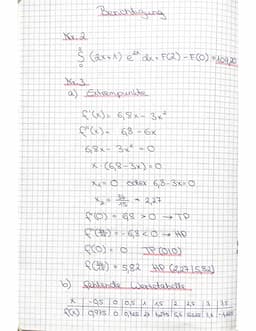 Berichtigung
Nr. 2
∫ (2x+1) e²ˣ dx = F(2) - F(0) = 109,20
Nr. 3
a) Extrempunkte
f'(x) = 6,8x - 3x²
f''(x) = 6,8 - 6x
6,8x - 3x² = 0
x · (6,8 - 3x) = 0
x₁ = 0 oder 6,8 - 3x = 0
x₂ = 34/15 ≈ 2,27
f''(0) = 6,8 > 0 → TP
f''(34/15) = -6,8 < 0 → HP
f(0) = 0 TP (0|0)
f(34/15) = 5,82 HP (2,27|5,82)
b) fehlende Wertetabelle
x -0,5 0 0,5 1 1,5 2 2,5 3 3,5
f(x) 0,975 0